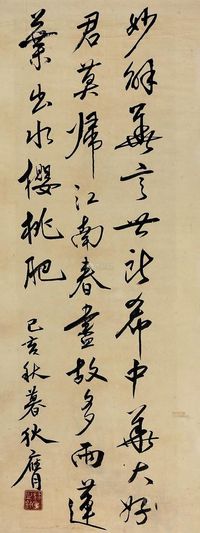 妙解華言世所希中華大好
君莫歸江南春盡故多雨蓮
葉出水櫻桃肥
己亥秋暮狄膺